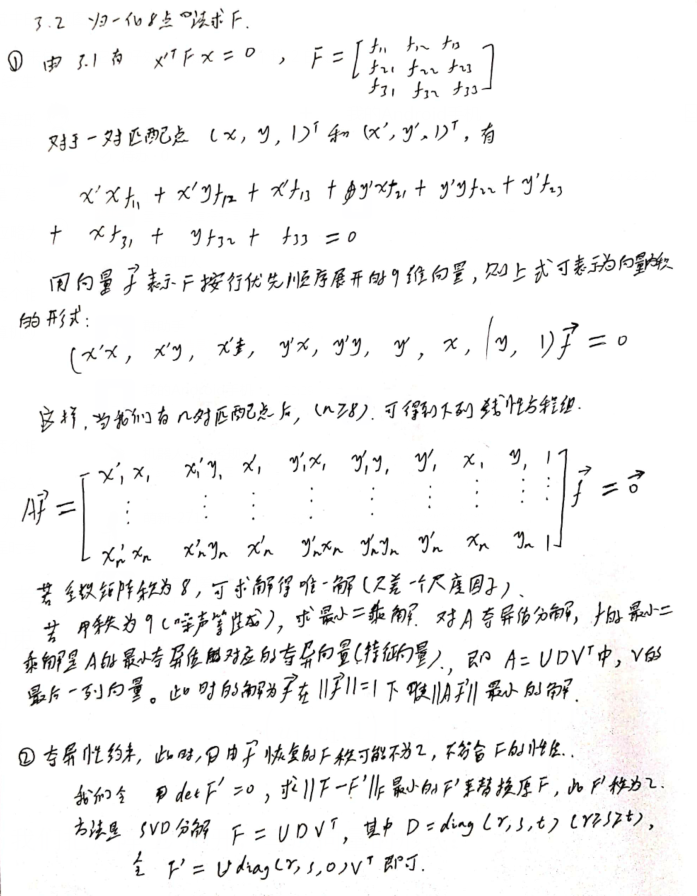 3.2 归一化8点法求F.
① 由3.1有 x'ᵀFx=0 , F=[f₁₁ f₁₂ f₁₃
f₂₁ f₂₂ f₂₃
f₃₁ f₃₂ f₃₃]
对于一对匹配点 (x, y, 1)ᵀ和(x', y', 1)ᵀ, 有
x'xf₁₁ + x'yf₁₂ + x'f₁₃ + y'xf₂₁ + y'yf₂₂ + y'f₂₃
+ xf₃₁ + yf₃₂ + f₃₃ = 0
用向量 f⃗ 表示F按行优先顺序展开的9维向量, 则上式可表示为向量内积
的形式:
(x'x, x'y, x', y'x, y'y, y', x, y, 1)f⃗ = 0
这样, 当我们有n对匹配点后, (n≥8). 可得到下列线性方程组.
Af⃗ = [x'₁x₁ x'₁y₁ x'₁ y'₁x₁ y'₁y₁ y'₁ x₁ y₁ 1
⋮ ⋮ ⋮ ⋮ ⋮ ⋮ ⋮ ⋮ ⋮
x'ₙxₙ x'ₙyₙ x'ₙ y'ₙxₙ y'ₙyₙ y'ₙ xₙ yₙ 1] f⃗ = 0⃗
若系数矩阵秩为8, 可求解得唯一解(只差一个尺度因子).
若秩为9(噪声等造成), 求最小二乘解. 对A奇异值分解, f的最小二
乘解是A的最小奇异值对应的奇异向量(特征向量)., 即 A=UDVᵀ中, V的
最后一列向量。此时的解为f⃗在||f⃗||=1下 ||Af⃗||最小的解.
② 奇异性约束, 此时, 由f⃗恢复的F秩可能不为2, 不符合F的性质.
我们令 det F'=0, 求||F-F'||F最小的F'来替换原F, 此F'秩为2.
方法是 SVD分解 F=UDVᵀ, 其中 D=diag(r,s,t) (r≥s≥t),
令 F'=Udiag(r,s,0)Vᵀ 即可.